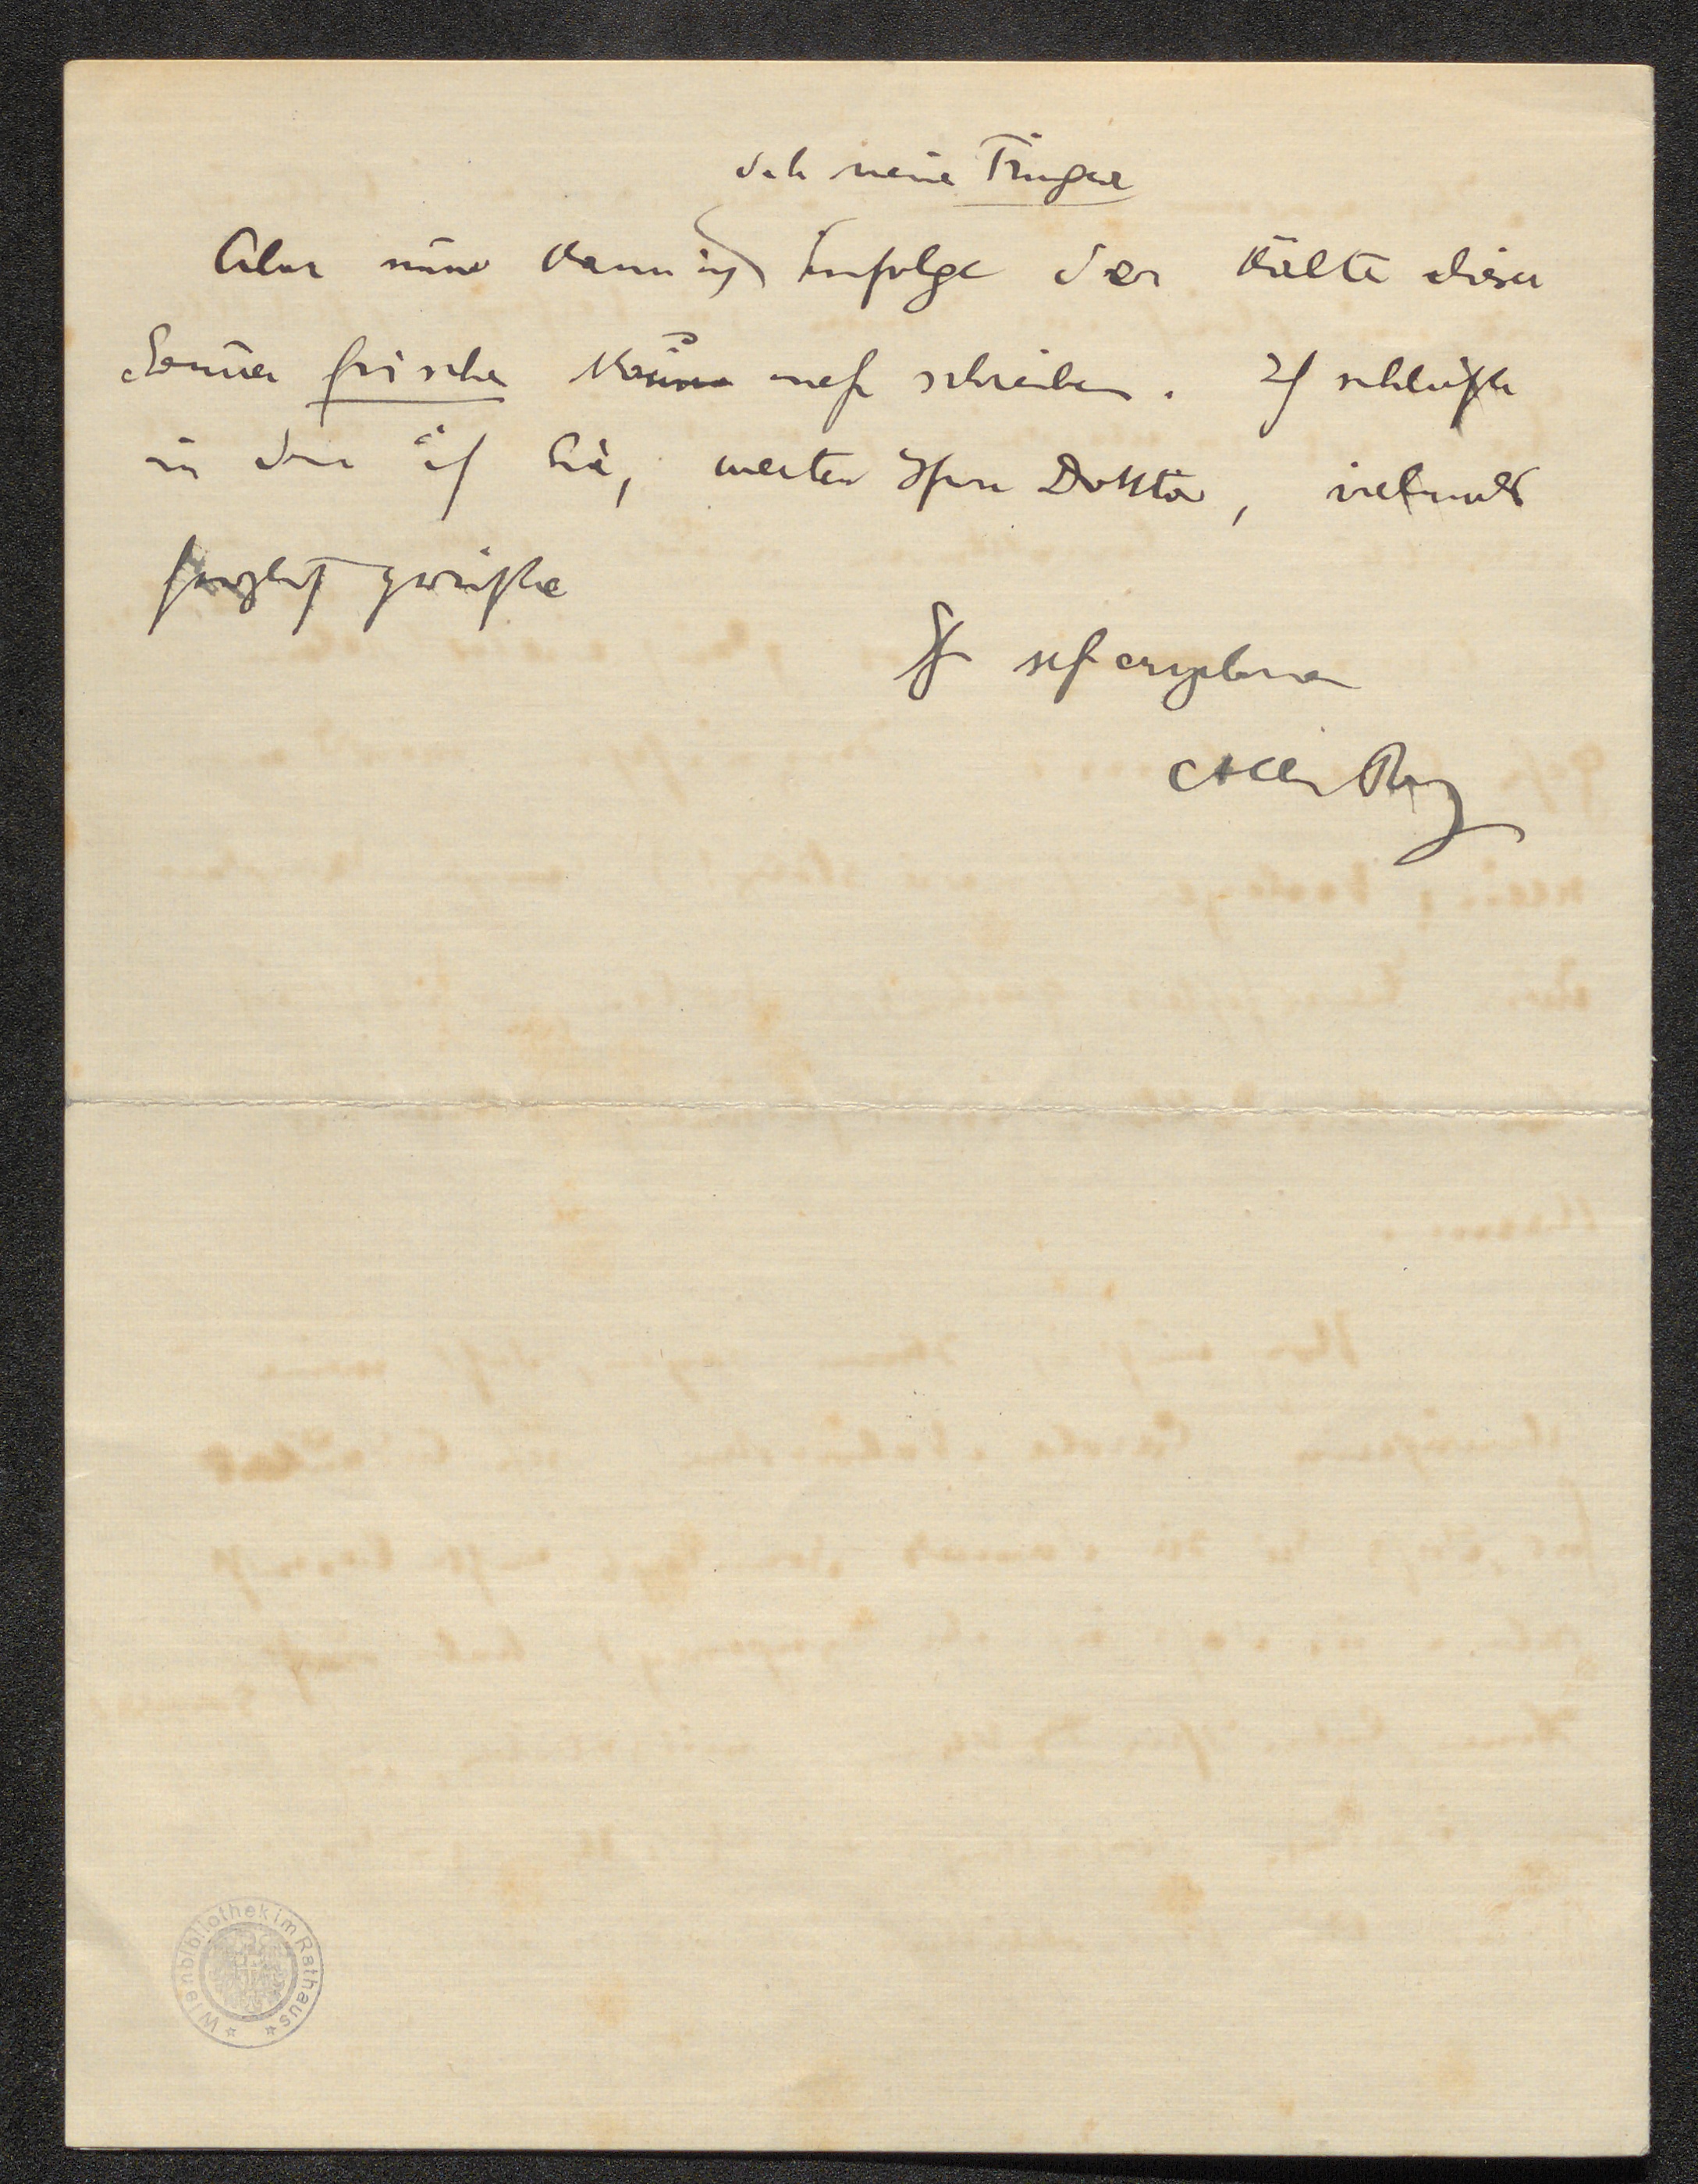 d. h. meine Finger
Aber nun kann ich infolge der Kälte dieser
Sommerfrische kaum mehr schreiben. Ich
in der ich Sie, werter Herr Doktor, vielmals
herzlichst grüße
Ihr sehr ergebener
Wienbibliothek im Rathaus